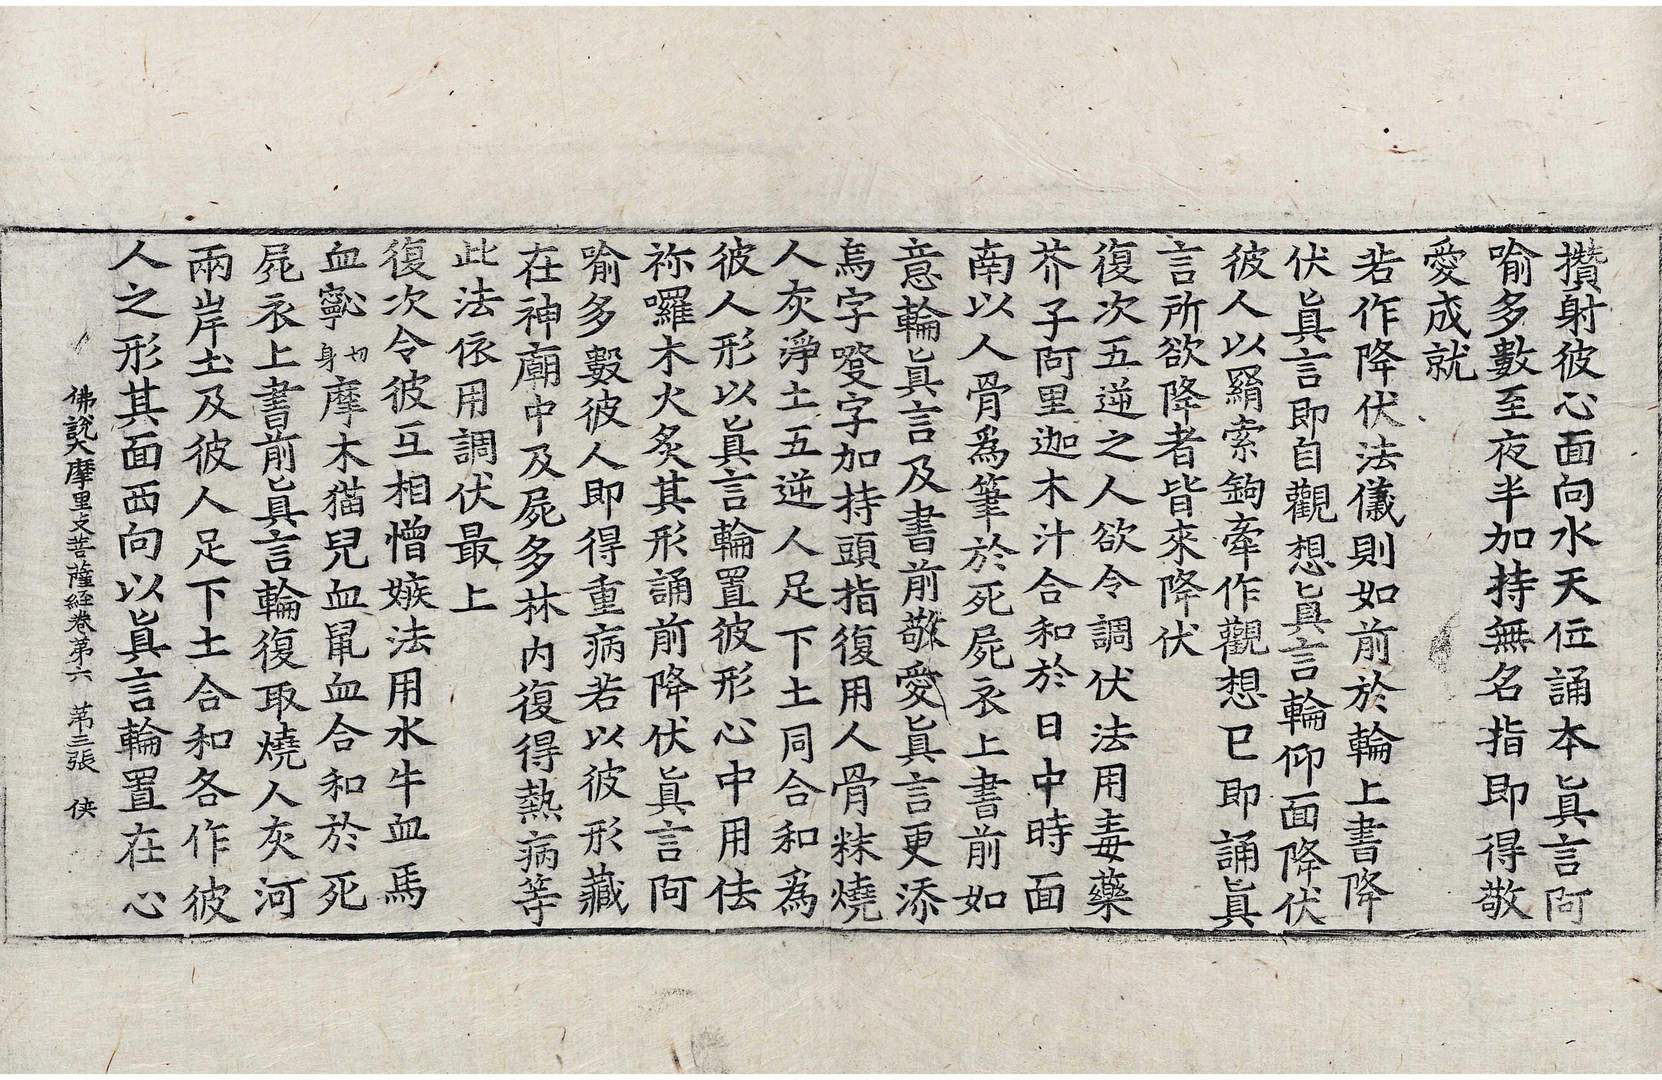 攢射彼心面向水天位誦本眞言阿
喻多數至夜半加持無名指即得敬
愛成就
若作降伏法儀則如前於輪上書降
伏眞言即自觀想眞言輪仰面降伏
彼人以羂索鉤牽作觀想已即誦眞
言所欲降者皆來降伏
復次五逆之人欲令調伏法用毒藥
芥子阿里迦木汁合和於日中時面
南以人骨爲筆於死屍衣上書前如
意輪眞言及書前敬愛眞言更添
烏字嚶字加持頭指復用人骨粖燒
人灰淨土五逆人足下土同合和爲
彼人形以眞言輪置彼形心中用佉
祢囉木火炙其形誦前降伏眞言阿
喻多數彼人即得重病若以彼形藏
在神廟中及屍多林內復得熱病等
此法依用調伏最上
復次令彼互相憎嫉法用水牛血馬
血 切身摩木猫兒血鼠血合和於死
屍衣上書前眞言輪復取燒人灰河
兩岸土及彼人足下土合和各作彼
人之形其面西向以眞言輪置在心
佛說大摩里支菩薩經卷第六 第三張 俠